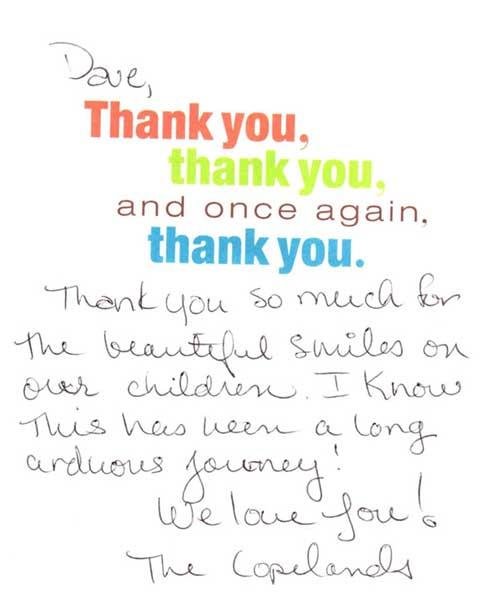 Dave,
Thank you,
thank you,
and once again,
thank you.
Thank you so much for
the beautiful smiles on
our children. I know
This has been a long
arduous journey!
We love you!
The Copelands